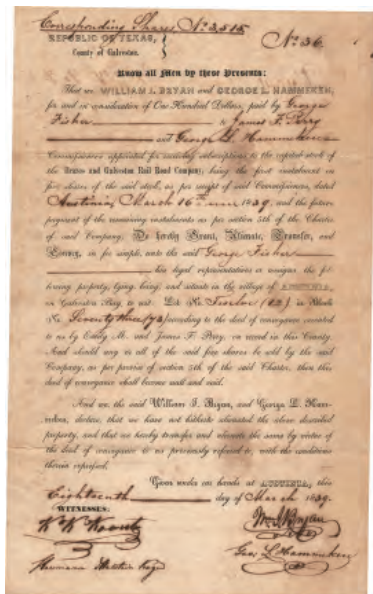 Corresponding Shares No. 3,515
REPUBLIC OF TEXAS,
County of Galveston.
No. 36.
Know all Men by these Presents:
That we, WILLIAM J. BRYAN and GEORGE L. HAMMEKEN,
for and in consideration of One Hundred Dollars, paid by George
Fisher to James F. Perry
and George L. Hammeken
Commissioners appointed for receiving subscriptions to the capital stock of the
Brazos and Galveston Rail Road Company, being the first instalment on
five shares of the said stock, as per receipt of said Commissioners, dated
Austinia, March 16th 1839, and the future
payment of the remaining instalments as per section 5th of the Charter
of said Company; Do hereby Grant, Alienate, Transfer, and
Convey, in fee simple, unto the said George Fisher
his legal representatives or assigns the fol-
lowing property, lying, being, and situate in the village of AUSTINIA,
on Galveston Bay, to wit: Lot No. Twelve (12) in Block
No. Seventy three (73) according to the deed of conveyance executed
to us by Emily M. and James F. Perry, on record in this County.
And should any or all of the said five shares be sold by the said
Company, as per proviso of section 5th of the said Charter, then this
deed of conveyance shall become null and void.
And we, the said William J. Bryan, and George L. Ham-
meken, declare, that we have not hitherto alienated the above described
property, and that we hereby transfer and alienate the same by virtue of
the deed of conveyance to us previously referred to, with the conditions
therein expressed.
Given under our hands at AUSTINIA, this
Eighteenth day of March 1839.
WITNESSES:
Wm. J. Bryan
Geo. L. Hammeken